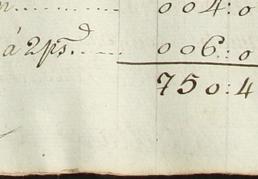 004:0
á 2ps. 006:0
750:4